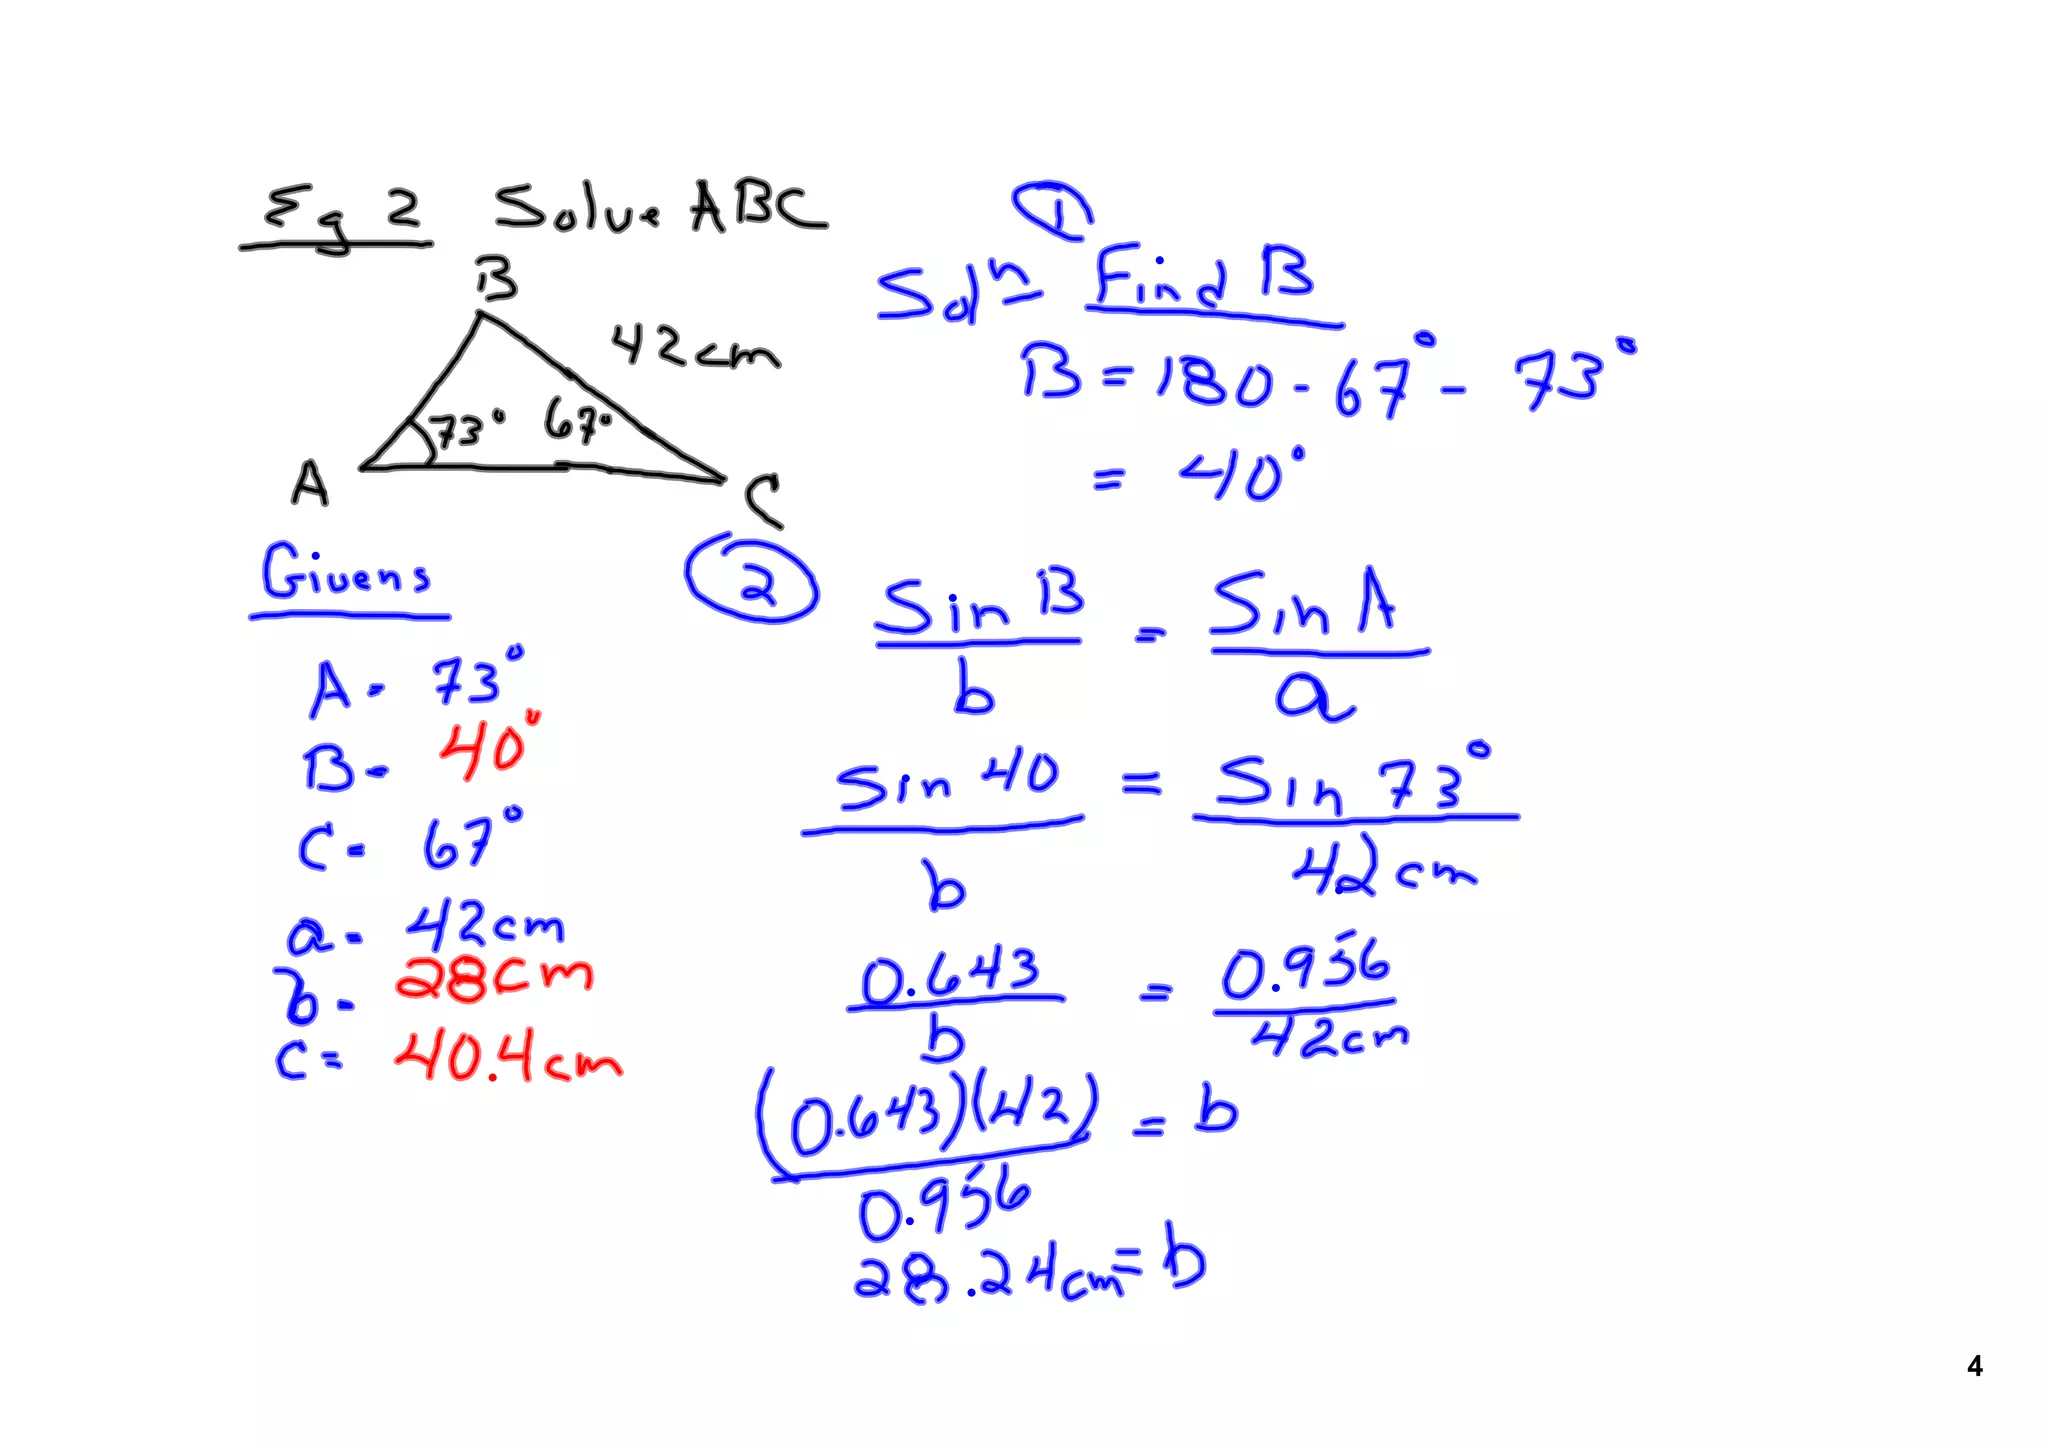 Eg 2 Solve ABC
B
42cm
73° 67°
A
C
Givens
A = 73°
B = 40°
C = 67°
a = 42cm
b = 28cm
c = 40.4cm
1
Solⁿ Find B
B = 180 - 67° - 73°
= 40°
2
Sin B = Sin A
b a
Sin 40 = Sin 73°
b 42cm
0.643 = 0.956
b 42cm
(0.643)(42) = b
0.956
28.24cm = b
4